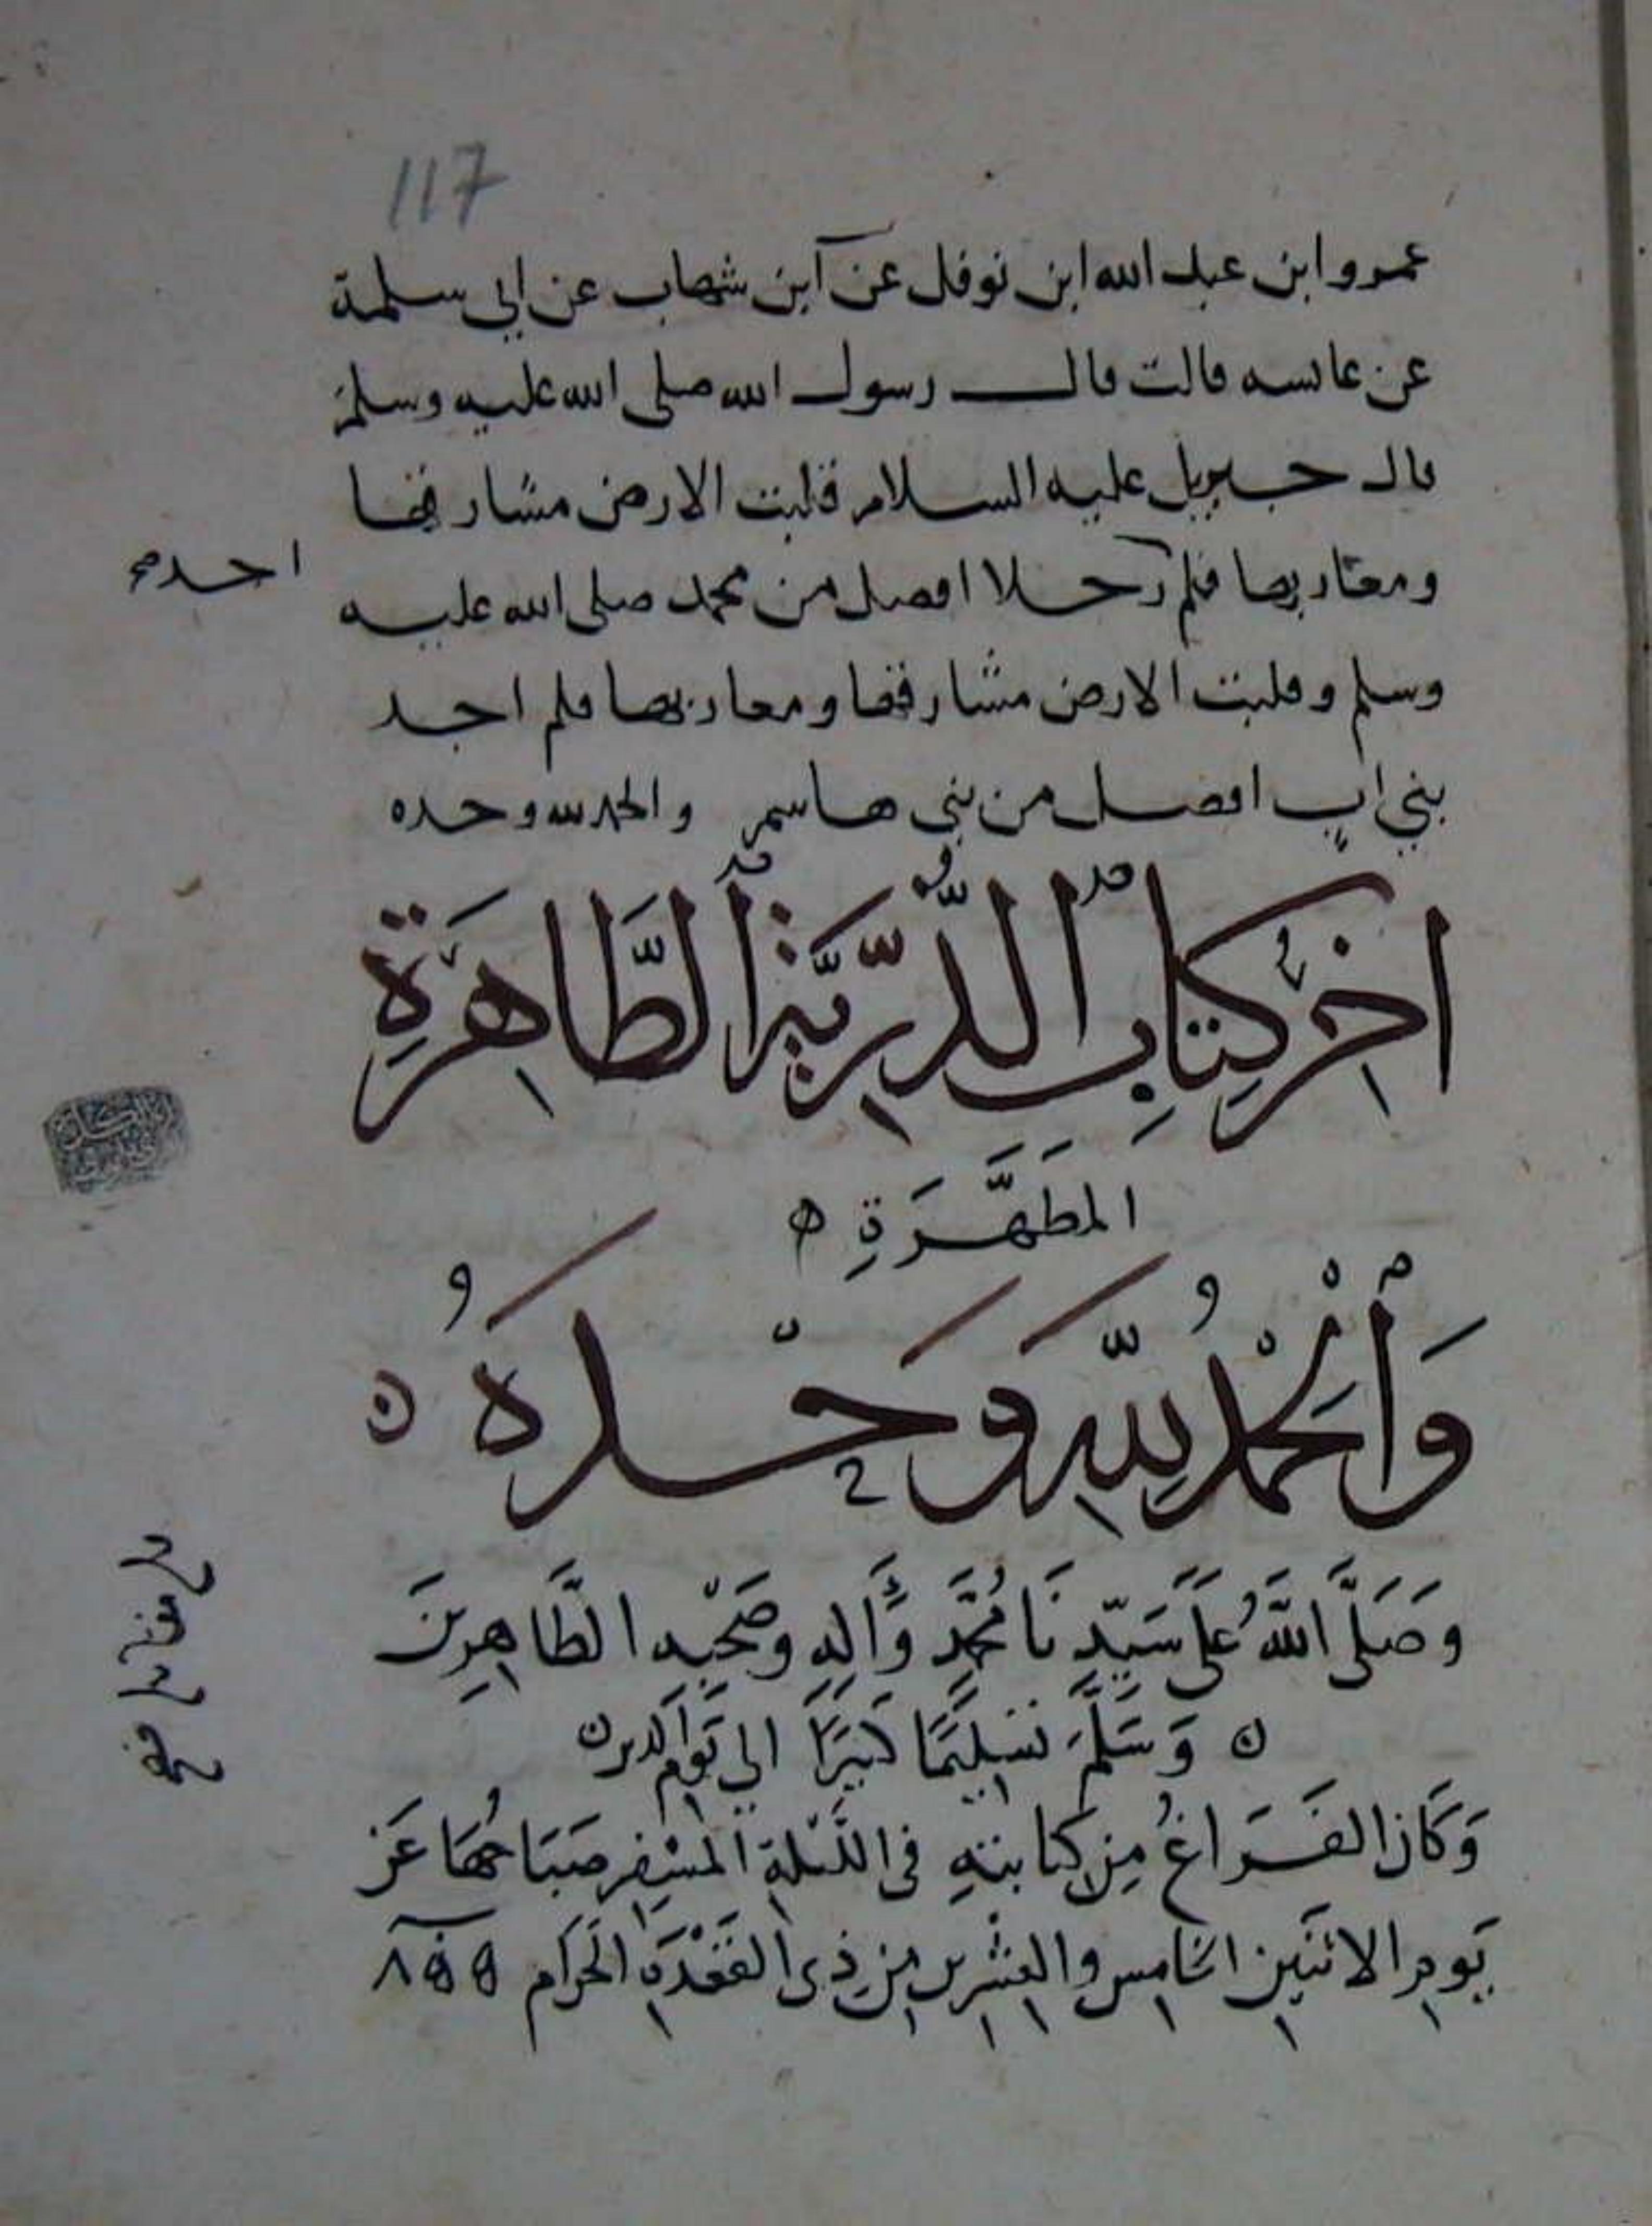 117
عمرو ابن عبد الله ابن نوفل عن ابن شهاب عن ابي سلمة
عن عائسه قالت قال رسول الله صلى الله عليه وسلم
قال جبريل عليه السلام قلبت الارض مشارقها
ومغاربها فلم رجلا افضل من محمد صلى الله عليه
احد صح
وسلم وقلبت الارض مشارقها ومغاربها فلم اجد
بني اب افضل من بني هاسم والحمد لله وحده
اٰخِرُ كِتَابِ الذُّرِّيَّةِ الطَّاهِرَةِ
المطَهَّرَةِ ه
وَالْحَمْدُ لِلّٰهِ وَحْدَهُ ن
وصَلَّى اللَّهُ عَلَى سَيِّدِنَا مُحَمَّدٍ وَّاٰلِهِ وصَحْبِهِ الطَّاهِرِينَ
ن وَسَلَّمَ تَسْلِيمًا كَثِيرًا الي يَوْمِ الدين
وَكَانَ الفَرَاغُ مِن كِتَابتهِ في اللَّيْلَةِ المسْفِرِ صَبَاحُهَا عَن
يَومِ الاثنَينِ الخَامِسِ والعِشْرِينَ مِن ذِي القَعْدَةِ الحَرَام